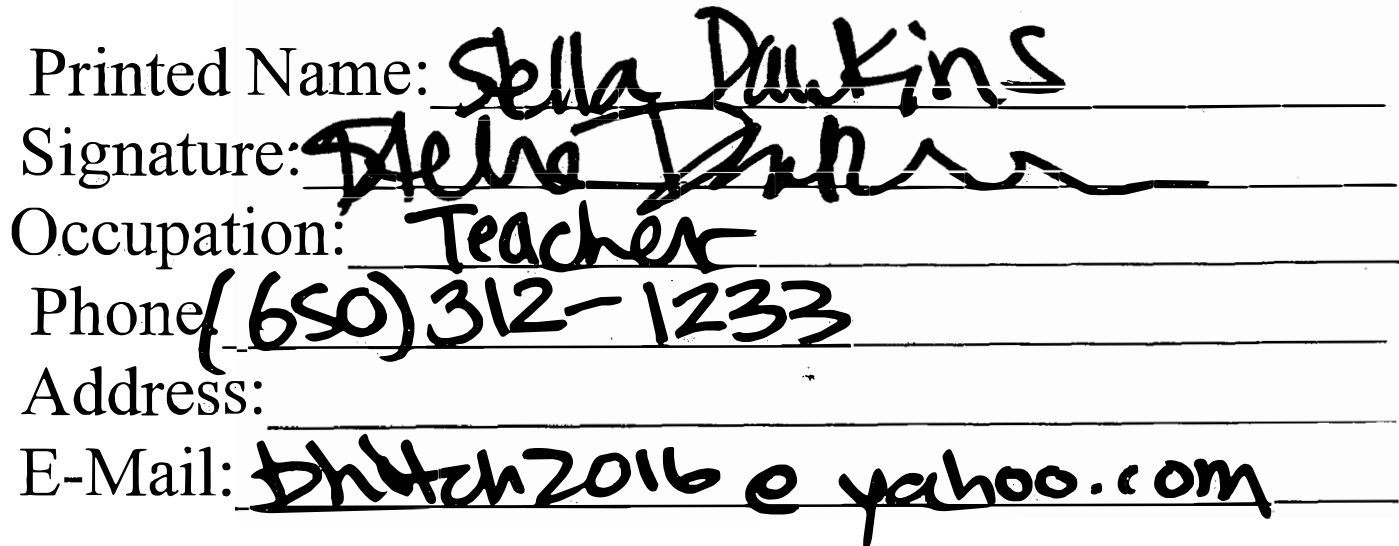 Printed Name: Stella Dawkins
Signature: Stella Dawkins
Occupation: Teacher
Phone: (650) 312-1233
Address:
E-Mail: @ yahoo.com